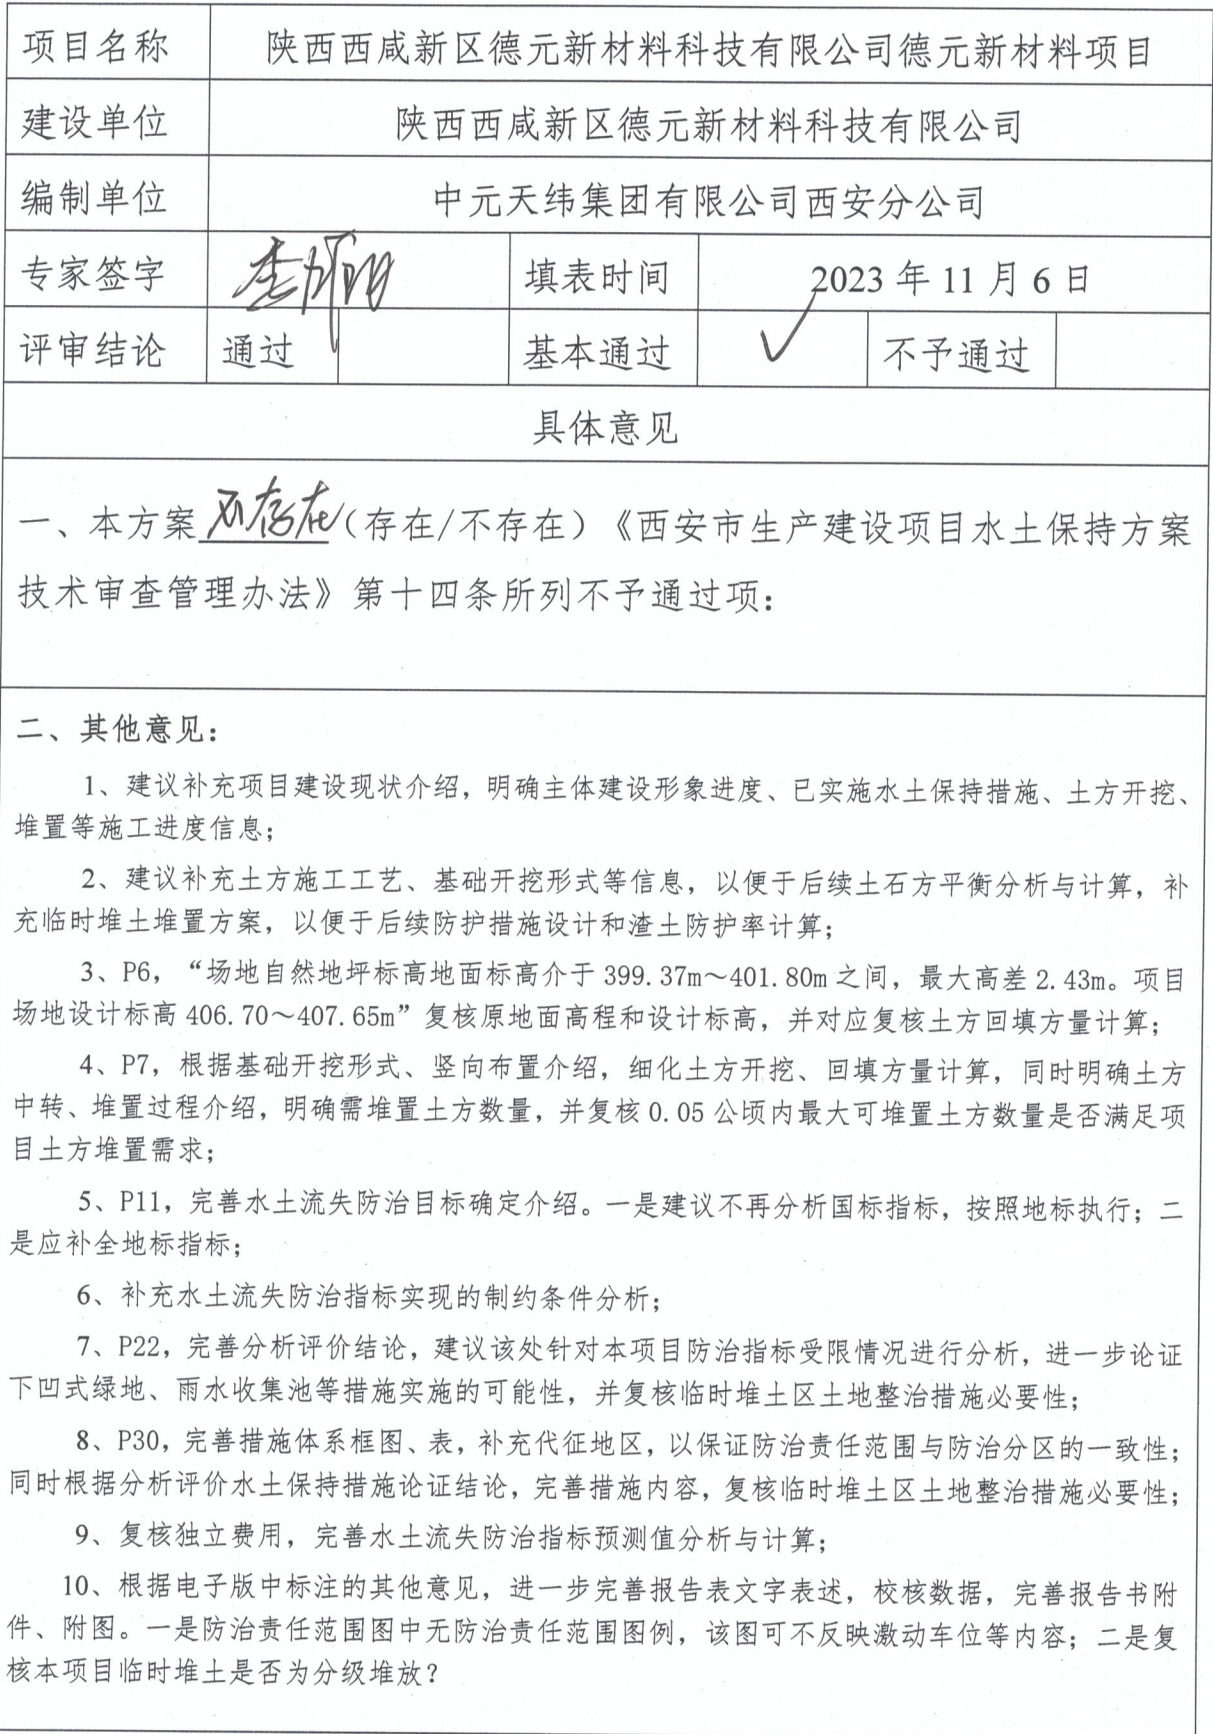 项目名称 陕西西咸新区德元新材料科技有限公司德元新材料项目
建设单位 陕西西咸新区德元新材料科技有限公司
编制单位 中元天纬集团有限公司西安分公司
专家签字 填表时间 2023年11月6日
评审结论 通过 基本通过 ✓ 不予通过
具体意见
一、本方案不存在(存在/不存在)《西安市生产建设项目水土保持方案
技术审查管理办法》第十四条所列不予通过项:
二、其他意见:
1、建议补充项目建设现状介绍,明确主体建设形象进度、已实施水土保持措施、土方开挖、
堆置等施工进度信息;
2、建议补充土方施工工艺、基础开挖形式等信息,以便于后续土石方平衡分析与计算,补
充临时堆土堆置方案,以便于后续防护措施设计和渣土防护率计算;
3、P6,“场地自然地坪标高地面标高介于399.37m～401.80m之间,最大高差2.43m。项目
场地设计标高406.70～407.65m”复核原地面高程和设计标高,并对应复核土方回填方量计算;
4、P7,根据基础开挖形式、竖向布置介绍,细化土方开挖、回填方量计算,同时明确土方
中转、堆置过程介绍,明确需堆置土方数量,并复核0.05公顷内最大可堆置土方数量是否满足项
目土方堆置需求;
5、P11,完善水土流失防治目标确定介绍。一是建议不再分析国标指标,按照地标执行;二
是应补全地标指标;
6、补充水土流失防治指标实现的制约条件分析;
7、P22,完善分析评价结论,建议该处针对本项目防治指标受限情况进行分析,进一步论证
下凹式绿地、雨水收集池等措施实施的可能性,并复核临时堆土区土地整治措施必要性;
8、P30,完善措施体系框图、表,补充代征地区,以保证防治责任范围与防治分区的一致性;
同时根据分析评价水土保持措施论证结论,完善措施内容,复核临时堆土区土地整治措施必要性;
9、复核独立费用,完善水土流失防治指标预测值分析与计算;
10、根据电子版中标注的其他意见,进一步完善报告表文字表述,校核数据,完善报告书附
件、附图。一是防治责任范围图中无防治责任范围图例,该图可不反映激动车位等内容;二是复
核本项目临时堆土是否为分级堆放?